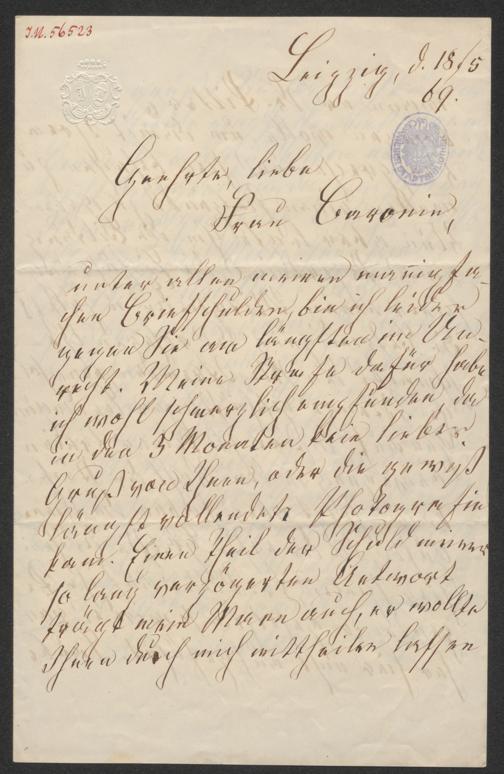 I.N. 56523
Leipzig, d. 18/5
69.
Geehrte, liebe
Frau Baronin,
unter allen meinen mannigfa-
chen Briefschulden, bin ich leider
gegen Sie am längsten im Un-
recht. Meine Strafe dafür habe
ich wohl schmerzlich empfunden, da
in den 3 Monaten kein lieber
Gruß von Ihnen, oder die gewiß
längst vollendete Photografie
kam. Einen Theil der Schuld meiner
so lang verzögerten Antwort
trägt mein Mann auch, er wollte
Ihnen durch mich mittheilen lassen